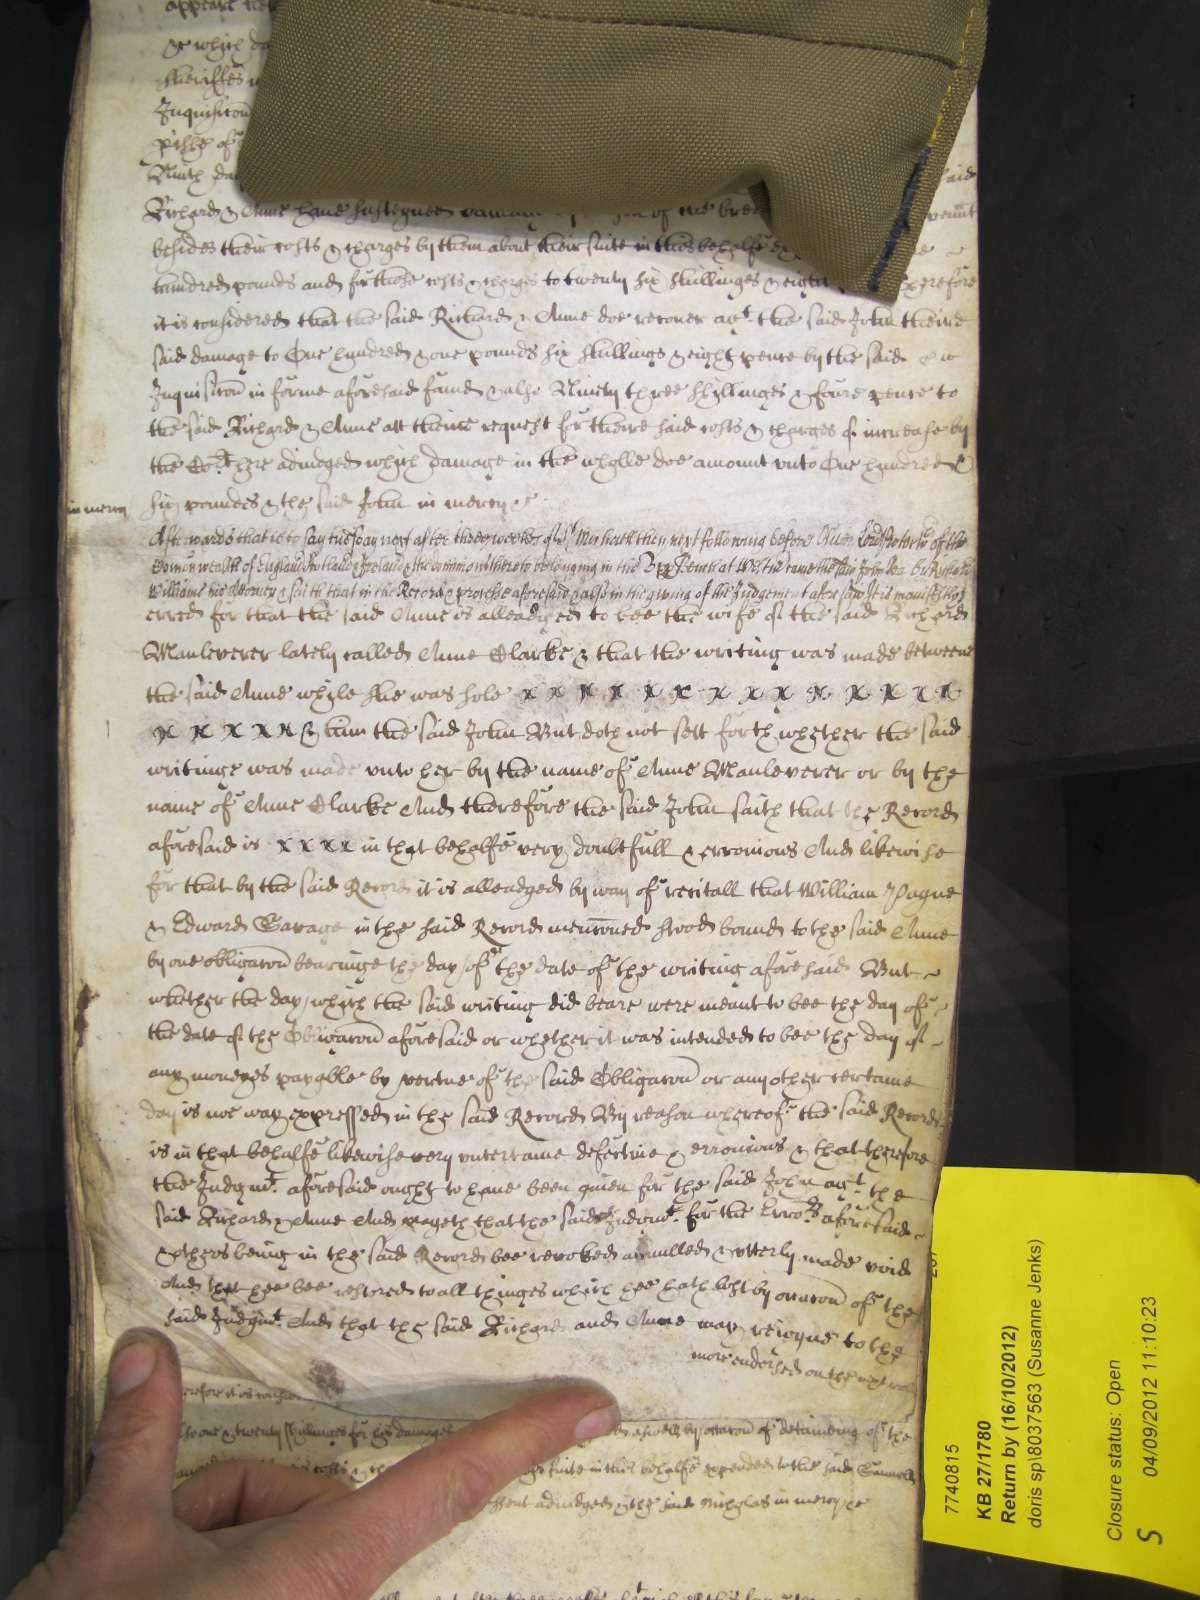 appeare
& which da
Sheriffes
Inquisicon
pishe of
Ninth da said
Richard & Anne have susteyned damage of the
besides their costs & charges by them about their suite in this behalfe
hundred pounds and for those costs & charges to twenty six shillinges & eight Therefore
it is considered that the said Richard & Anne doe recover agt. the said John theire
said damage to One hundred & one pounds six shillings & eight pence by the said
Inquisicon in forme aforesaid found & alsoe Ninety three shillinges & foure pence to
the said Richard & Anne att theire request for theire said costs & charges of increase by
the Cort. here adiudged which damage in the wholle doe amount unto One hundred &
in mercy six poundes & the said John in mercy &c
Afterwards that is to say tuesday next after three weekes of St. Michaell then next following before Oliver Lord Protector of the
Comonwealth of England Scotland & Ireland & the Dominions thereto belonging in the Upper Bench at Westm came the said John by Richard
Williams his Attorney & saith that in the Record & processe aforesaid & alsoe in the giving of the Judgement aforesaid It is manifestly
erred for that the said Anne is alleadged to bee the wife of the said Richard
Mauleverer lately called Anne Clarke & that the writing was made betweene
the said Anne while she was sole x x x x x x x x x x x x x
x x x x x & him the said John But doth not sett forth whether the said
writinge was made unto her by the name of Anne Mauleverer or by the
name of Anne Clarke And therefore the said John saith that the Record
aforesaid is x x x x in that behalfe very doubtfull & erronious And likewise
for that by the said Record it is alleadged by way of recitall that William Pagne
& Edward Savage in the said Record mencioned stood bound to the said Anne
by one obligacon bearinge the day of the date of the writing aforesaid But
whether the day which the said writing did beare were meant to bee the day of
the date of the Obligacon aforesaid or whether it was intended to bee the day of
any moneyes payable by vertue of the said Obligacon or any other certaine
day is noe way expressed in the said Record By reason whereof the said Record
is in that behalfe likewise very uncertaine defective & erronious & that therefore
the Judgmt. aforesaid ought to have been given for the said John agt. the
said Richard & Anne And prayeth that the said Judgmt. for the Errors aforesaid
& others being in the said Record bee revoked anulled & utterly made void
And that hee bee restored to all thinges which hee hath lost by occacon of the
said Judgmt. And that the said Richard and Anne may reioyne to the
more endorsed on the next roll
erefore it is consid
to one & twenty shillinges for his damages aswell by occacon of detaineing of the
costs & suite in this behalfe expended to the said
assent adiudged & the said Nicholas in mercy &c
7740815
KB 27/1780
Return by (16/10/2012)
doris sp\8037563 (Susanne Jenks)
Closure status: Open
04/09/2012 11:10:23
S